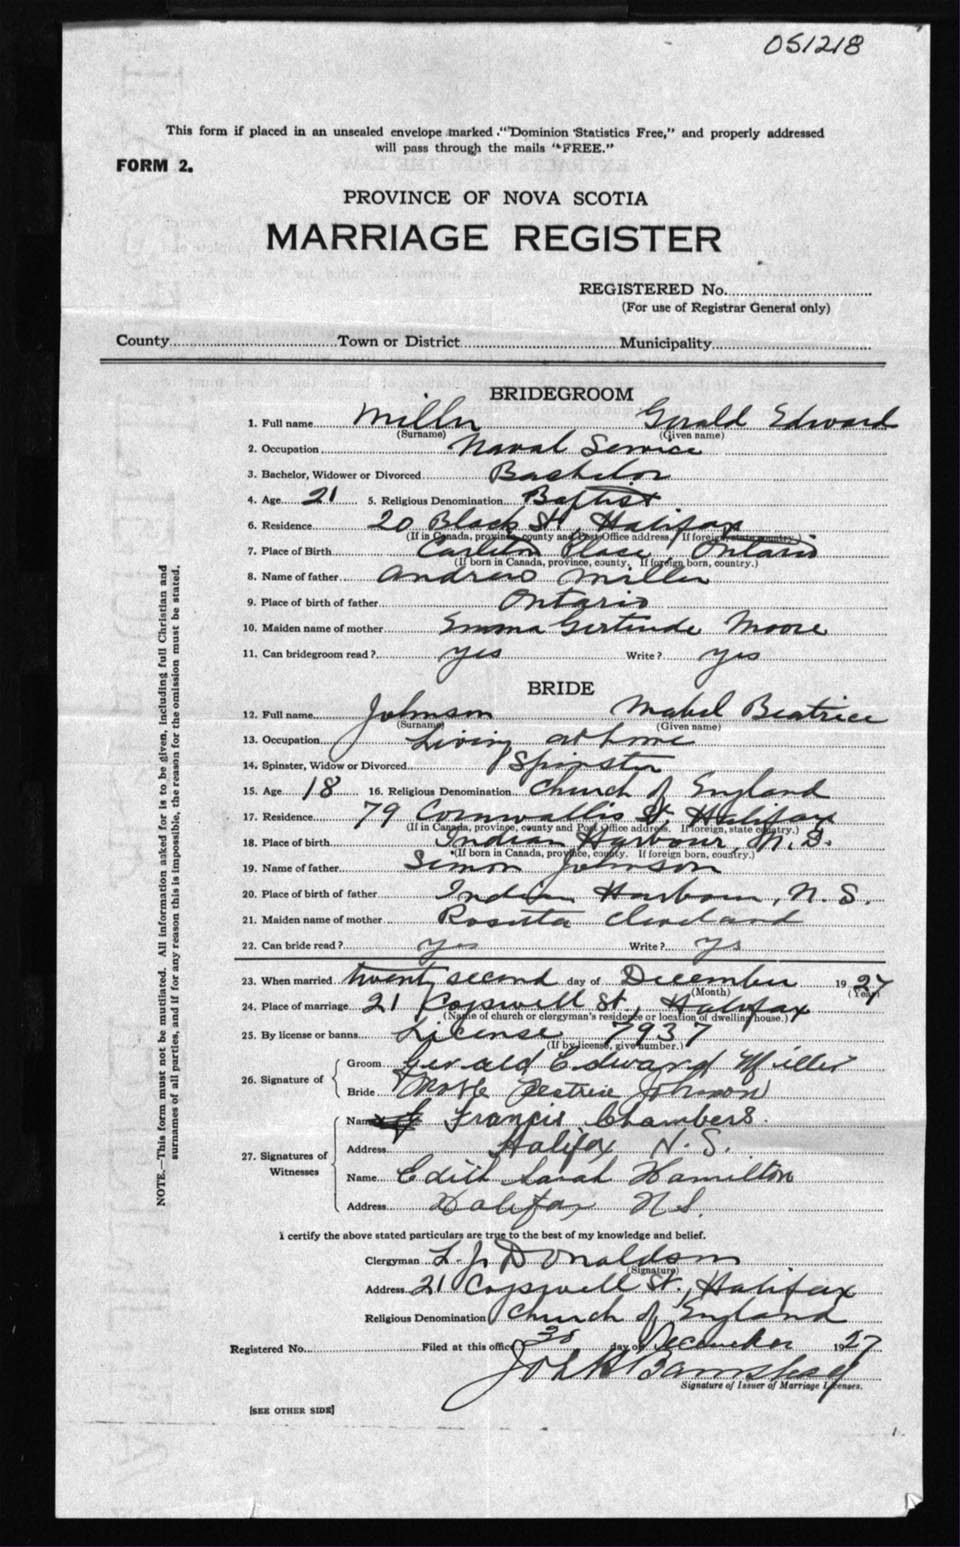 051218
This form if placed in an unsealed envelope marked "Dominion Statistics Free," and properly addressed
will pass through the mails "FREE."
FORM 2.
PROVINCE OF NOVA SCOTIA
MARRIAGE REGISTER
REGISTERED No.
(For use of Registrar General only)
County Town or District Municipality
BRIDEGROOM
1. Full name Miller Gerald Edward
(Surname) (Given name)
2. Occupation Naval Service
3. Bachelor, Widower or Divorced Bachelor
4. Age 21 5. Religious Denomination Baptist
6. Residence 20 Black St, Halifax
(If in Canada, province, county and Post Office address. If foreign, state country.)
7. Place of Birth Carleton Place, Ontario
(If born in Canada, province, county. If foreign born, country.)
8. Name of father Andrew Miller
9. Place of birth of father Ontario
10. Maiden name of mother Emma Gertrude Moore
11. Can bridegroom read? yes Write? yes
BRIDE
12. Full name Johnson Mabel Beatrice
(Surname) (Given name)
13. Occupation Living at home
14. Spinster, Widow or Divorced Spinster
15. Age 18 16. Religious Denomination Church of England
17. Residence 79 Cornwallis St, Halifax
(If in Canada, province, county and Post Office address. If foreign, state country.)
18. Place of birth Indian Harbour, N.S.
(If born in Canada, province, county. If foreign born, country.)
19. Name of father Simon Johnson
20. Place of birth of father Indian Harbour, N.S.
21. Maiden name of mother Rosetta Cleveland
22. Can bride read? yes Write? yes
23. When married twenty second day of December 1927
(Month) (Year)
24. Place of marriage 21 Cogswell St., Halifax
(Name of church or clergyman's residence or location of dwelling house.)
25. By license or banns License 7937
(If by license, give number.)
26. Signature of
Groom Gerald Edward Miller
Bride Beatrice Johnson
27. Signatures of Witnesses
Name Francis Chambers.
Address Halifax N.S.
Name Edith Sarah Hamilton
Address Halifax N.S.
I certify the above stated particulars are true to the best of my knowledge and belief.
Clergyman L. J. Donaldson
(Signature)
Address 21 Cogswell St., Halifax
Religious Denomination Church of England
Registered No. Filed at this office 30 day of December 1927
Signature of Issuer of Marriage Licenses.
[SEE OTHER SIDE]
NOTE.—This form must not be mutilated. All information asked for is to be given, including full Christian and
surnames of all parties, and if for any reason this is impossible, the reason for the omission must be stated.